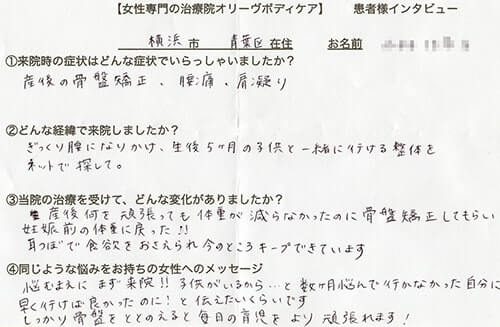 【女性専門の治療院オリーヴボディケア】 患者様インタビュー
横浜市 青葉区在住 お名前
①来院時の症状はどんな症状でいらっしゃいましたか？
産後の骨盤矯正、腰痛、肩凝り
②どんな経緯で来院しましたか？
ぎっくり腰になりかけ、生後5ヶ月の子供と一緒に行ける整体を
ネットで探して。
③当院の治療を受けて、どんな変化がありましたか？
産後何を頑張っても体重が減らなかったのに骨盤矯正してもらい
妊娠前の体重に戻った!!
耳つぼで食欲をおさえられ今のところキープできています
④同じような悩みをお持ちの女性へのメッセージ
悩むまえにまず来院!!子供がいるから…と数ヶ月悩んで行かなかった自分に
早く行けば良かったのに!と伝えたいくらいです
しっかり骨盤をととのえると毎日の育児をより頑張れます!